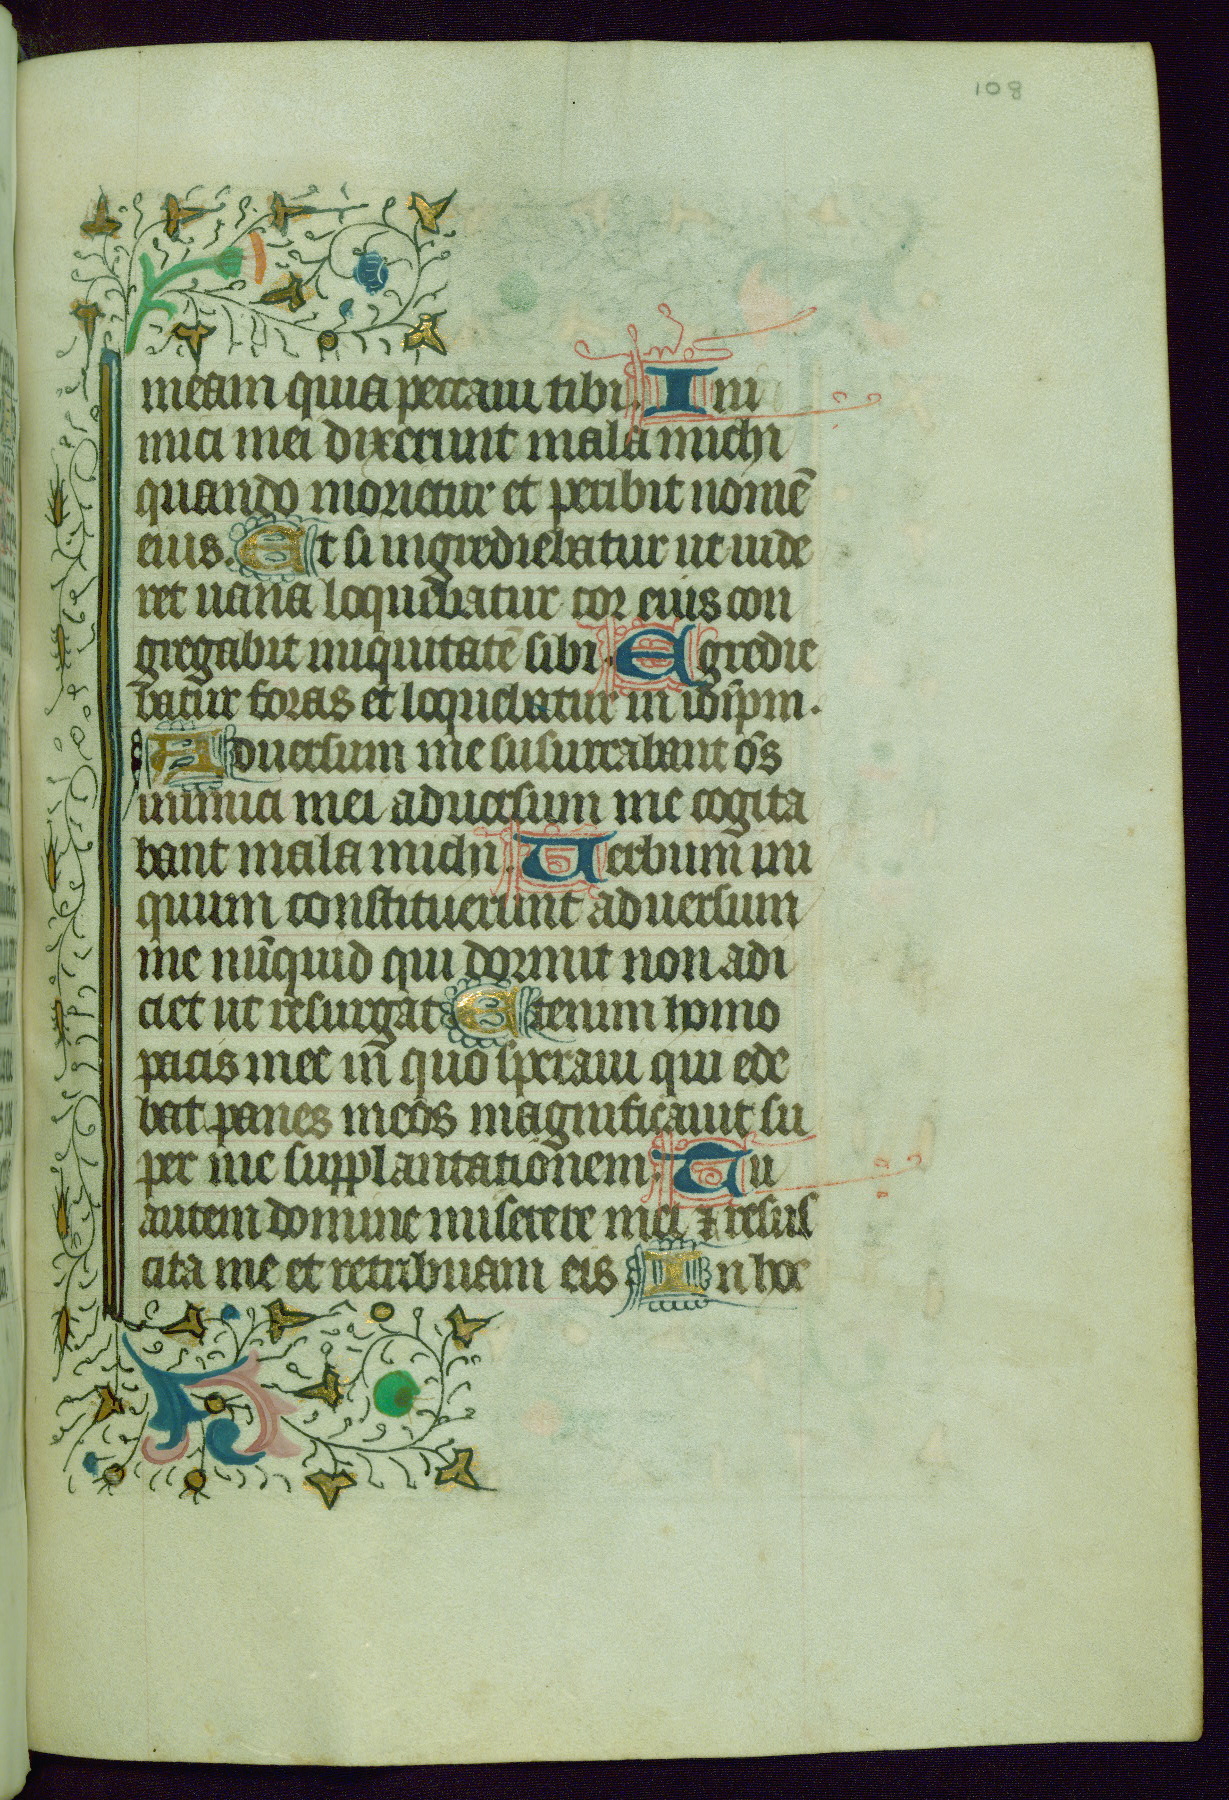 108
meam quia peccaui tibi. Ini
mici mei dixerunt mala michi
quando morietur et peribit nomē
eius. Et si ingrediebatur ut uide
ret uana loquebatur cor eius con
gregabit iniquitatē sibi. Egredie
batur foras et loquebatur in idip̄m.
Aduersum me susurrabant om̄s
inimici mei aduersum me cogita
bant mala michi. Uerbum ini
quum constituerunt aduersum
me nūquid qui dormit non adi
ciet ut resurgat Etenim homo
pacis mee in quo speraui qui ede
bat panes meos magnificauit su
per me supplantationem. Tu
autem domine miserere mei ⁊ resus
cita me et retribuam eis In hoc